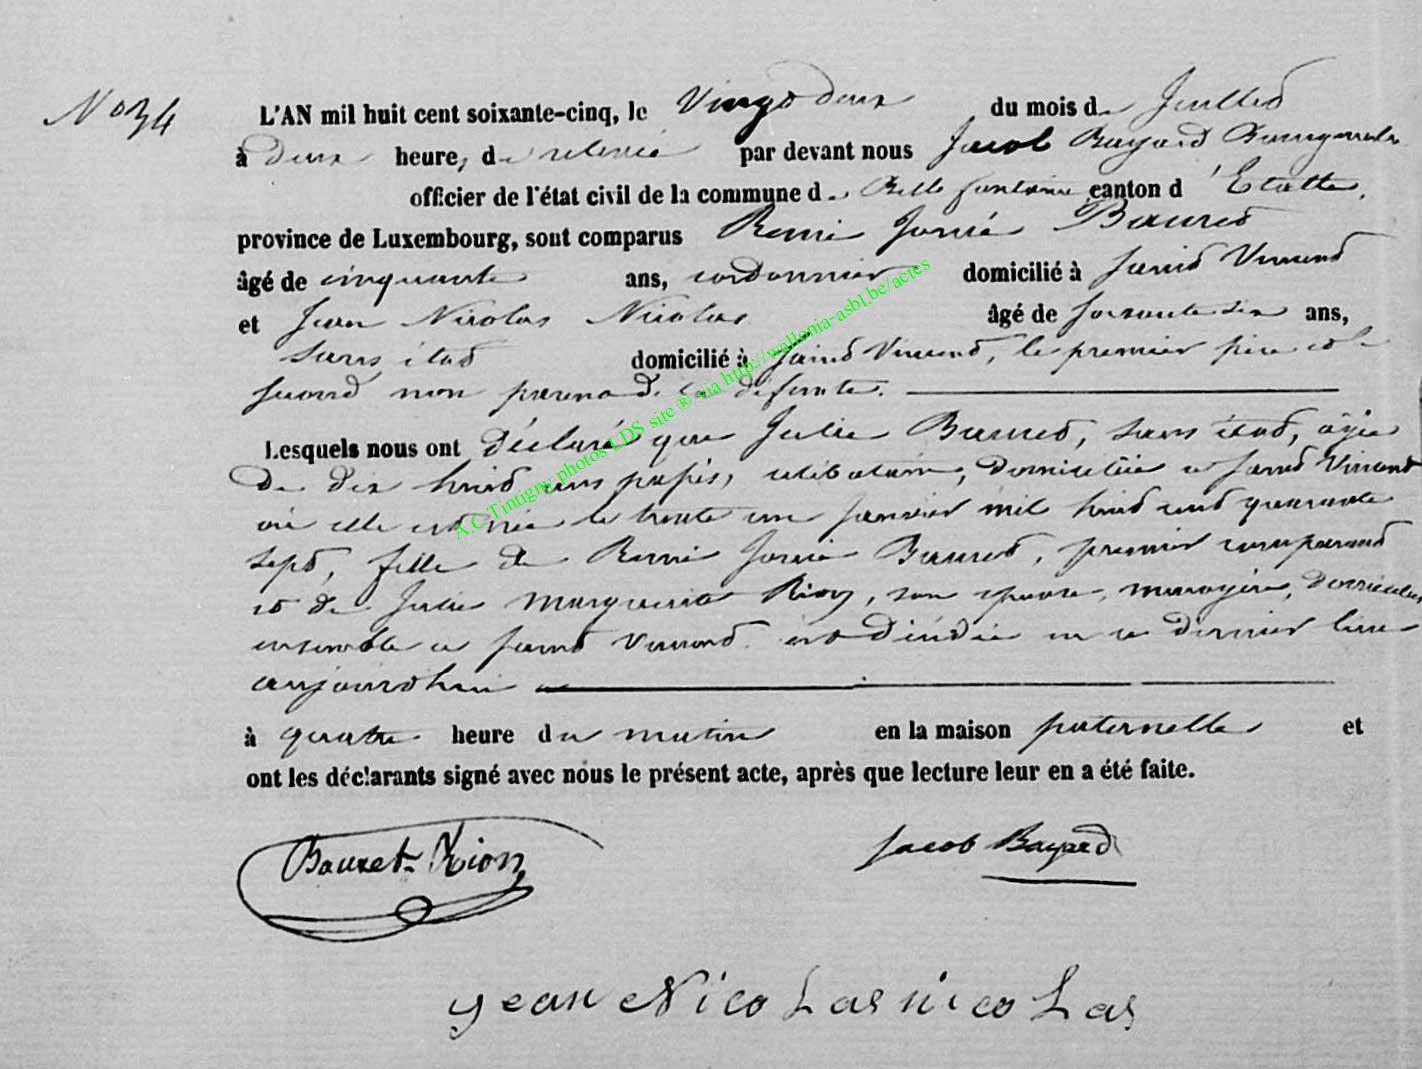 N° 34
L'AN mil huit cent soixante-cinq, le Vingt deux du mois de Juillet
à deux heures de relevée par devant nous Jacob Bayard Bourgmestre
officier de l'état civil de la commune de Bellefontaine canton d'Etalle,
province de Luxembourg, sont comparus Remi Bauret
âgé de cinquante ans, cordonnier domicilié à Saint Vincent
et Jean Nicolas Nicolas âgé de soixante six ans,
sans état domicilié à Saint Vincent, le premier père et le
second non parent de la défunte.
Lesquels nous ont déclaré que Julie Bauret, sans état, âgée
de dix huit ans passés, célibataire, domiciliée à Saint Vincent
où elle est née le trente un janvier mil huit cent quarante
sept, fille de Remi Bauret, premier comparant
et de Julie Marguerite Rion, son épouse, ménagère, domiciliés
ensemble à Saint Vincent est décédée en ce dernier lieu
aujourd'hui
à quatre heure du matin en la maison paternelle et
ont les déclarants signé avec nous le présent acte, après que lecture leur en a été faite.
Bauret-Rion
Jacob Bayard
jean Nicolas nicolas
A.C.Tintigny photos LDS site ® via http://wallonia-asbl.be/actes